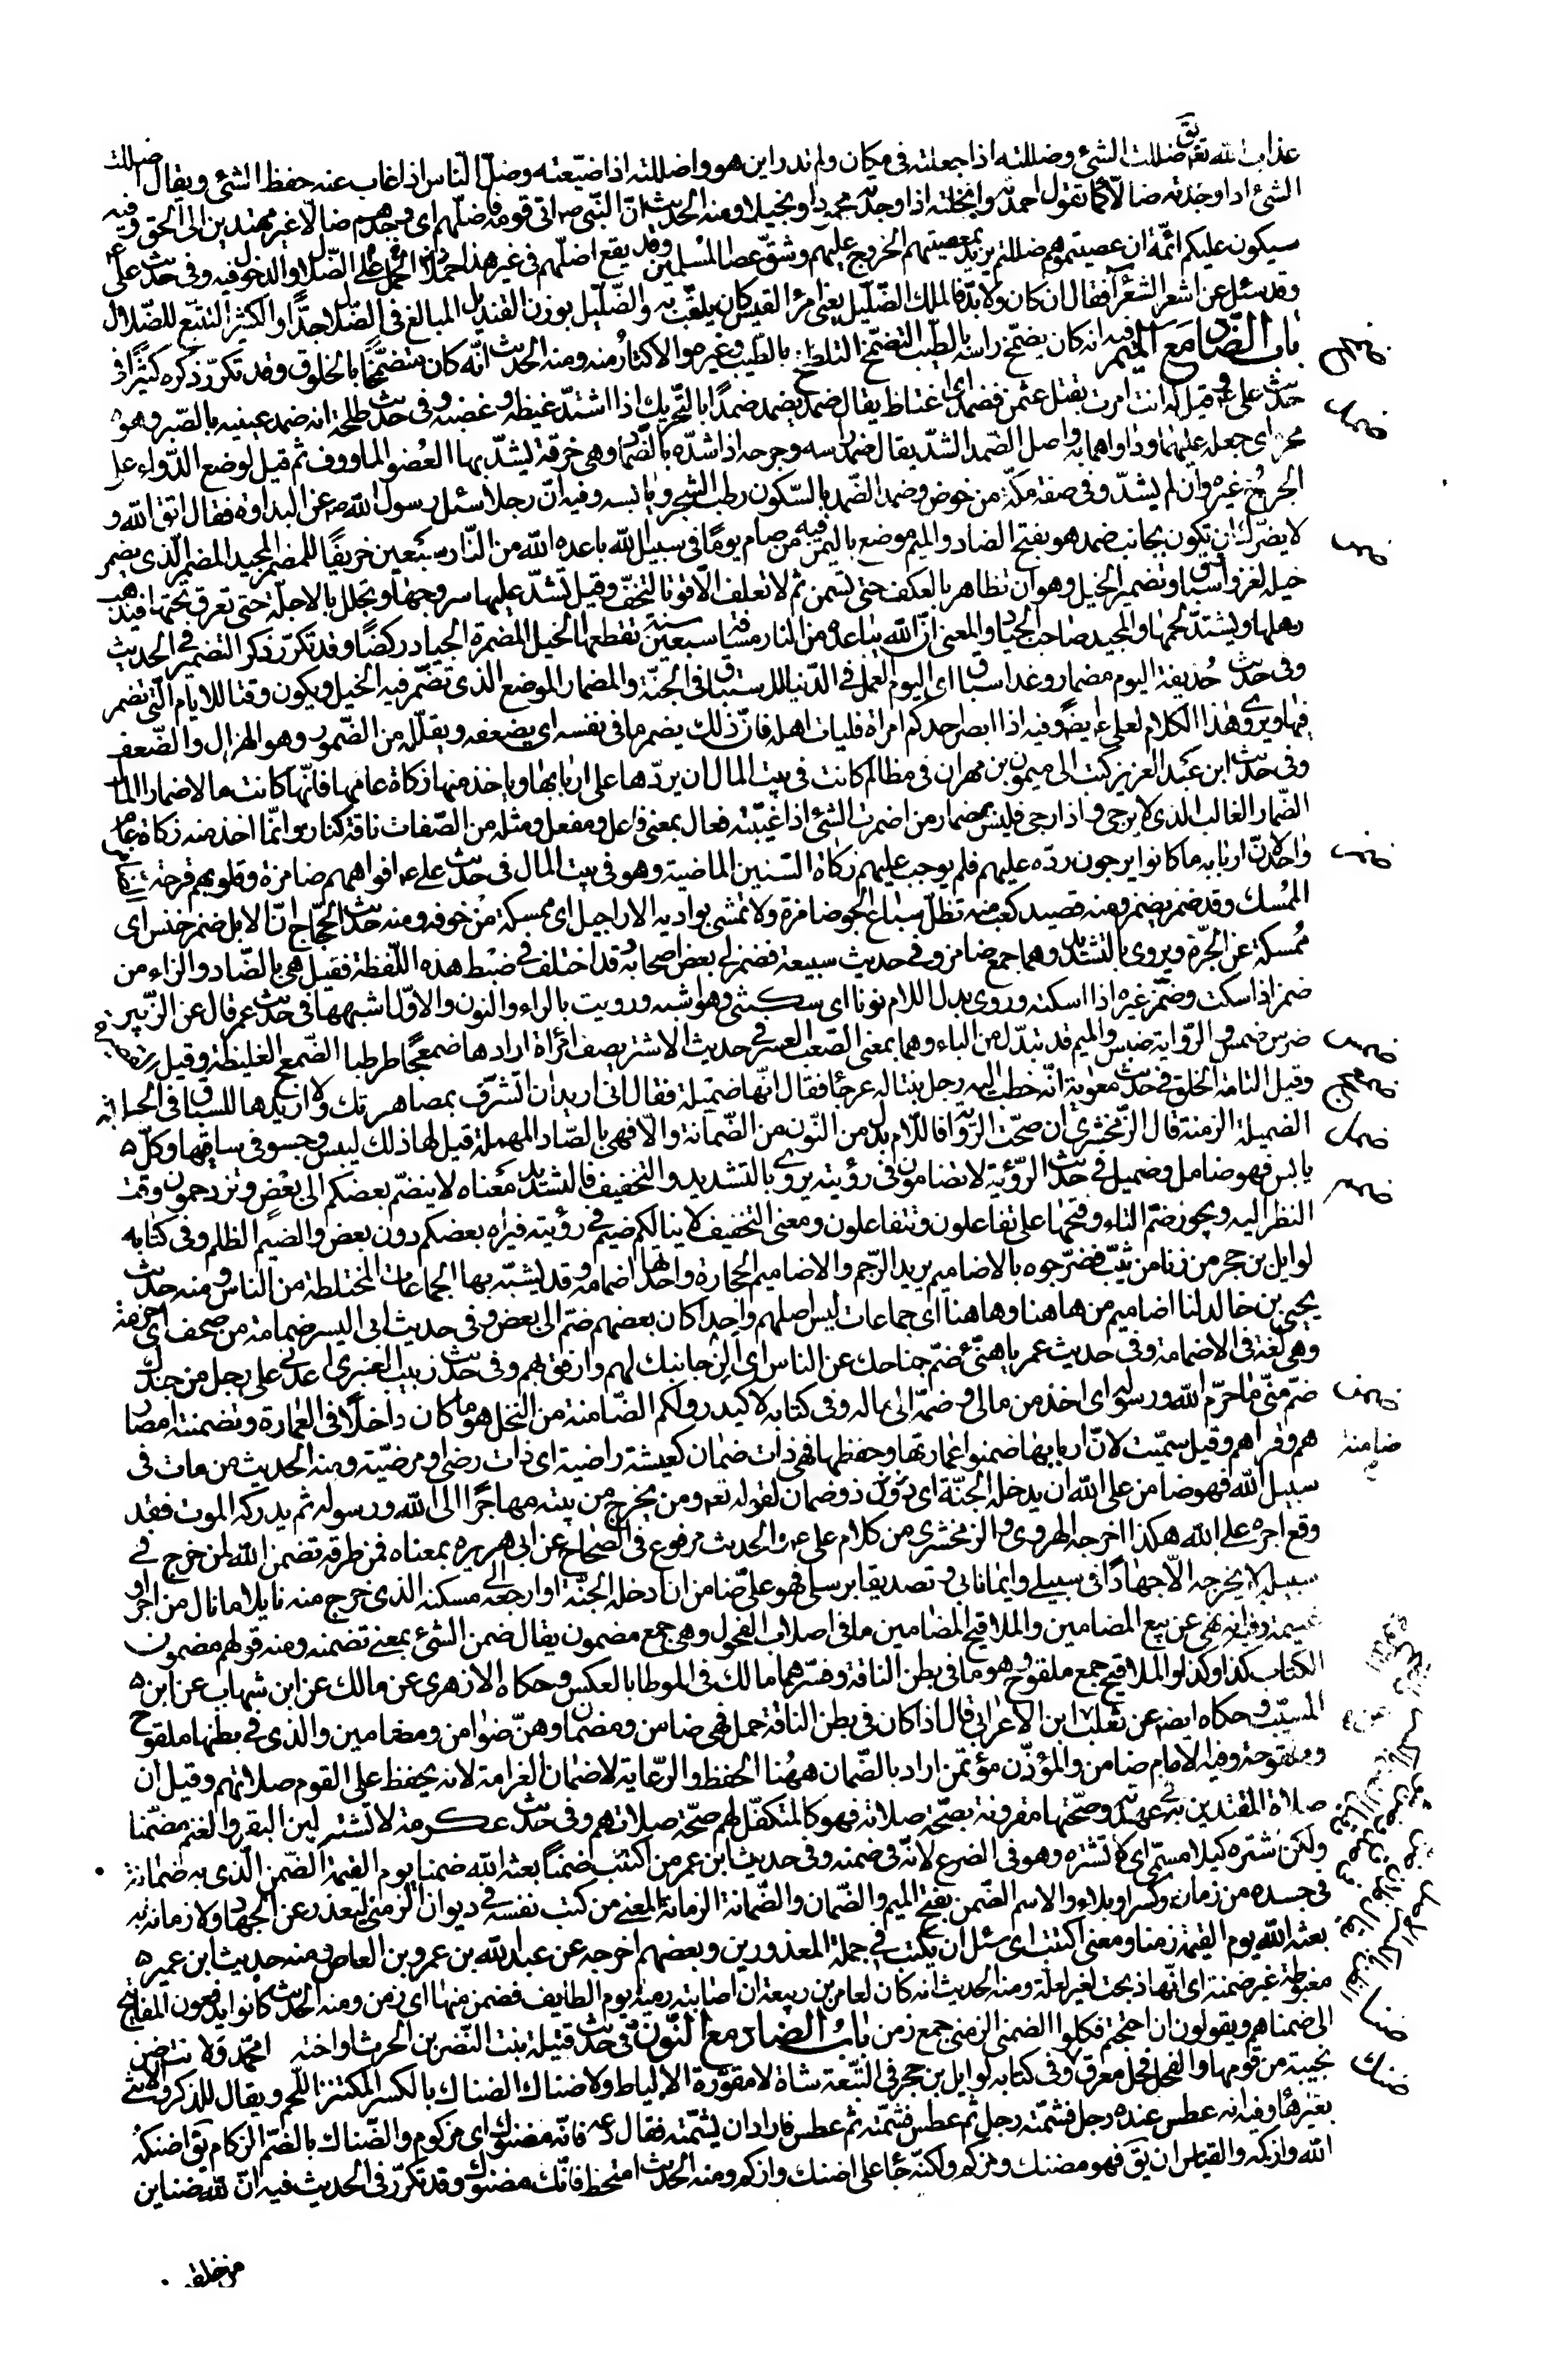 عذاب الله تعم يق ضللت الشئ وضللته اذا جعلته فى مكان ولم تدر اين هو واضللته اذا ضيّعته وضلّ النّاس اذا غاب عنه حفظ الشئ ويقال اضللت
الشئ اذا وجدته ضالّا كما تقول احمدته وابخلته اذا وجدته محمودا وبخيلا ومنه الحديث انّ النّبى ص اتى قومه فاضلّهم اى وجدهم ضالّا غير مهتدين الى الحق وفيه
سيكون عليكم ائمّة ان عصيتموهم ضللتم يريد بمعصيتهم الخروج عليهم وشقّ عصا المسلمين وقد يقع اضلّهم فى غير هذا على الحمل على الضّلال والدخول فيه وفى حديث على ع
وقد سئل عن اشعر الشعرآ فقال ان كان ولا بدّ فالملك الضّلّيل يعنى امرؤ القيس كان يلقّب به والضّلّيل بوزن القنديل المبالغ فى الضّلال جدّا والكثير التتبّع للضّلال
باب الضّاد مع الميم فيه انه كان يضمّخ راسه بالطّيب التضمّخ التلطخ بالطّيب وغيره والاكثار منه ومنه الحديث انّه كان متضمّخا بالخلوق وقد تكرّر ذكره كثيرًا فى
حديث على ع وقيل له انت امرت بقتل عثمن فضمد اى اغتاظ يقال ضمد يضمد ضمدًا بالتّحريك اذا اشتدّ غيظه وغضبه وفى حديث طلحة انه ضمد عينيه بالصّبر وهو
محرم اى جعله عليهما وداواهما به واصل الضّمد الشدّ يقال ضمد راسه وجرحه اذا شدّه بالضّماد وهى خرقة يشدّ بها العُضو الماووف ثم قيل لوضع الدّواء على
الجرح وغيره وان لم يشدّ وفى صفة مكّة من خوض وضمد الضّمد بالسّكون رطب الشجر ويابسه وفيه انّ رجلا سئل رسول الله ص عن البداوة فقال اتق الله و
لا يضرّك ان تكون بجانب ضمد هو بفتح الضاد والميم موضع باليمن فيه من صام يومًا فى سبيل الله باعده الله من النّار سبعين خريفًا للمضمر المجيد المضمر الّذى يضمر
خيله لغزو او سباق وتضمير الخيل وهو ان تظاهر بالعلف حتى تسمن ثم لا تعلف الّا قوتا لتخفّ وقيل تشدّ عليها سروجها وتجلل بالاجلّة حتى تعرق تحتها فيذهب
رهلها ويشتدّ لحمها والمجيد صاحب الجياد والمعنى انّ الله يباعده من النار مسافة سبعين سنة تقطعها الخيل المضمرة الجياد ركضًا وقد تكرّر ذكر التضمير فى الحديث
وفى حديث حُذيفة اليوم مضمار وغدا سباق اى اليوم العمل فى الدّنيا للاستباق فى الجنّة والمضمار الموضع الذى تضمّر فيه الخيل ويكون وقتا للايام الّتى تضمر
فيها ويروى هذا الكلام لعلى ع ايضًا وفيه اذا ابصر احدكم امراة فليات اهله فانّ ذلك يضمر ما فى نفسه اى يضعفه ويقلّله من الضّمور وهو الهزال والضّعف
وفى حديث ابن عبد العزيز كتب الى ميمون بن مهران فى مظالم كانت فى بيت المال ان يردّها على اربابها وياخذ منها زكاة عامها فانّها كانت مالا ضمارا المال
الضّمار الغائب الذى لا يرجى واذا رجى فليس بضمار من اضمرت الشئ اذا غيّبته فعال بمعنى فاعل ومفعل ومثله من الصّفات ناقة كناز وانّما اخذ منه زكاة عام
واحد لانّ اربابه ما كانوا يرجون ردّه عليهم فلم يوجب عليهم زكاة السّنين الماضية وهو فى بيت المال فى حديث على ع افواههم ضامزة وقلوبهم قرحة
المُمسك وقد ضمز يضمز ومنه قصيد كعب منه تظلّ سباع الجو ضامزة ولا تمشى بواديه الاراجيل اى ممسكة من خوفه ومنه حديث الحجّاج انّ الابل ضمز خنس اى
مُمسكة عن الجرّة ويروى بالتشديد وهما جمع ضامز وفى حديث سبيعة فضمز لى بعض اصحابه قد اختلف فى ضبط هذه اللّفظة فقيل هى بالضّاد والزاء من
ضمز اذا سكت وضمّز غيره اذا اسكته وروى بدل اللام نونا اى سكتنى وهو اشبه ورويت بالراء والنون والاوّل اشبهها فى حديث عمر قال عن الزّبير
ضرس ضمس والرّواية ضبس والميم قد تبدّل من الباء وهما بمعنى الصّعب العسر فى حديث الاشتر يصف امرأة ارادها ضمعجًا طرطبا الضّمعج الغليظة وقيل القصيرة
وقيل التامّة الخلق فى حديث معوية انّه خطب اليه رجل بنتا له عرجا فقال انّها ضميلة فقال انى اريد ان اتشرّف بمصاهرتك ولا اريدها للسباق فى الحلبة
الضميلة الزمنة قال الزّمخشرى ان صحّت الرّواية فاللّام بدل من النّون من الضّمانة والّا فهى بالصّاد المهملة قيل لها ذلك ليبس وجسو فى ساقها وكلّ ه
يابس فهو ضامل وضميل فى حديث الرّؤية لا تضامّون فى رؤيته يروى بالتشديد والتخفيف فالتشديد معناه لا ينضمّ بعضكم الى بعضٍ وتزدحمون وقت
النظر اليه ويجوز ضمّ التاء وفتحها على تفاعلون وتتفاعلون ومعنى التخفيف لا ينالكم ضيم فى رؤيته فيراه بعضكم دون بعض والضيم الظلم وفى كتابه
لوايل بن حجر من زنا من ثيّب فضرّجوه بالاضاميم يريد الرّجم والاضاميم الحجارة واحدها اضمامة وقد يشبّه بها الجماعات المختلطة من الناس ومنه حديث
يحيى بن خالد لنا اضاميم من هاهنا وهاهنا اى جماعات ليس اصلهم واحدا كان بعضهم ضمّ الى بعض وفى حديث ابى اليسر ضمامة من صحف اى حزمة
وهى لغة فى الاضمامة وفى حديث عمر يا هنىّ ضمّ جناحك عن الناس اى الن جانبك لهم وارفق بهم وفى حديث زبيب العنبرى اعدنى على رجل من جندك
ضمّ منّى ما حرّم الله ورسوله اى اخذ من مالى وضمّه الى ماله وفى كتابه لاكيدر ولكم الضّامنة من النخل هو ما كان داخلًا فى العمارة وتضمنته امصا
هم وقراهم وقيل سمّيت لانّ اربابها ضمنوا عمارتها وحفظها فهى ذات ضمان كعيشة راضية اى ذات رضى او مرضيّة ومنه الحديث من مات فى
سبيل الله فهو ضامن على الله ان يدخله الجنّة اى ذو ضمان لقوله تعم ومن يخرج من بيته مهاجرًا الى الله ورسوله ثم يدركه الموت فقد
وقع اجره على الله هكذا اخرجه الهروى والزمخشرى من كلام على ع والحديث مرفوع فى الصّحاح عن ابى هريره بمعناه فمن طرقه تضمن الله لمن خرج فى
سبيله لا يخرجه الّا جهادًا فى سبيلى وايمانا بى وتصديقا برسلى فهو علىّ ضامن ان ادخله الجنّة او ارجعه الى مسكنه الذى خرج منه نايلا ما نال من اجر او
غنيمة وفيه انه نهى عن بيع المضامين والملاقيح المضامين ما فى اصلاب الفحول وهى جمع مضمون يقال ضمن الشئ بمعنى تضمنه ومنه قولهم مضمون
الكتاب كذا وكذا والملاقيح جمع ملقوح وهو ما فى بطن الناقة وفسّرهما مالك فى الموطا بالعكس وحكاه الازهرى عن مالك عن ابن شهاب عن ابن ه
المسيّب وحكاه ايض عن ثعلب ابن الاعرابى قال اذا كان فى بطن الناقة حمل فهى ضامن ومضمان وهنّ ضوامن ومضامين والذى فى بطنها ملقوح
وملقوحة وفيه الامام ضامن والمؤذّن مؤتمن اراد بالضّمان ههُنا الحفظ والرّعاية لا ضمان الغرامة لانه يحفظ على القوم صلاتهم وقيل ان
صلاة المقتدين به فى عهدته وصحّتها مقرونة بصحّة صلاته فهو كالمتكفّل لهم صحّة صلاتهم وفى حديث عكرمة لا تشتر لبن البقر والغنم مضمّنا
ولكن اشتره كيلا مسمّى اى لا تشتره وهو فى الضرع لانّه فى ضمنه وفى حديث ابن عمر من اكتتب ضمنًا بعثه الله ضمنا يوم القيمة الضّمن الّذى به ضمانة
فى جسده من زمانة وكسر او بلاء والاسم الضّمن بفتح الميم والضّمان والضّمانة الزمانة المعنى من كتب نفسه فى ديوان الزمنى ليعذر عن الجهاد ولا زمانة به
بعثه الله يوم القيمة زمنا ومعنى اكتتب اى سئل ان يكتب فى جملة المعذورين وبعضهم اخرجه عن عبد الله بن عمرو بن العاص ومنه حديث ابن عمير ه
معبوطة غير ضمنة اى انّها ذبحت لغير لعلّة ومنه الحديث انه كان لعامر بن ربيعة ابن اصابته رمية يوم الطايف فضمن منها اى زمن ومنه الحديث كانوا يدفعون المفاتيح
الى ضمناهم ويقولون ان احتجتم فكلوا الضمنى الزمنى جمع زمن باب الضاد مع النّون فى حديث قتيلة بنت النّضر بن الحرث او اخته امحمّد ولانت ضن
نجيبة من قومها والفحل فحل معرق وفى كتابه لوايل بن حجر فى التّيعة شاة لا مقوّرة الالياط ولا ضناك الضناك بالكسر المكتنز اللّحم ويقال للذكر والانثى
بغيرها وفيه انه عطس عنده رجل فشمّته رجل ثم عطس فشمّته ثم عطس فاراد ان يشمّته فقال دعه فانّه مضنوك اى مزكوم والضّناك بالضّم الزكام يق اضنكه
الله وازكمه والقياس ان يق فهو مضنك ومزكم ولكنّه جا على اضنك وازكم ومنه الحديث امتخط فانّك مضنوك وقد تكرّر فى الحديث فيه انّ لله ضناين
من خلقه
ضمخ
ضمد
ضمر
ضمز
ضمس
ضمعج
ضمل
ضمم
ضمن
ضامنة
ضنا
ضنك